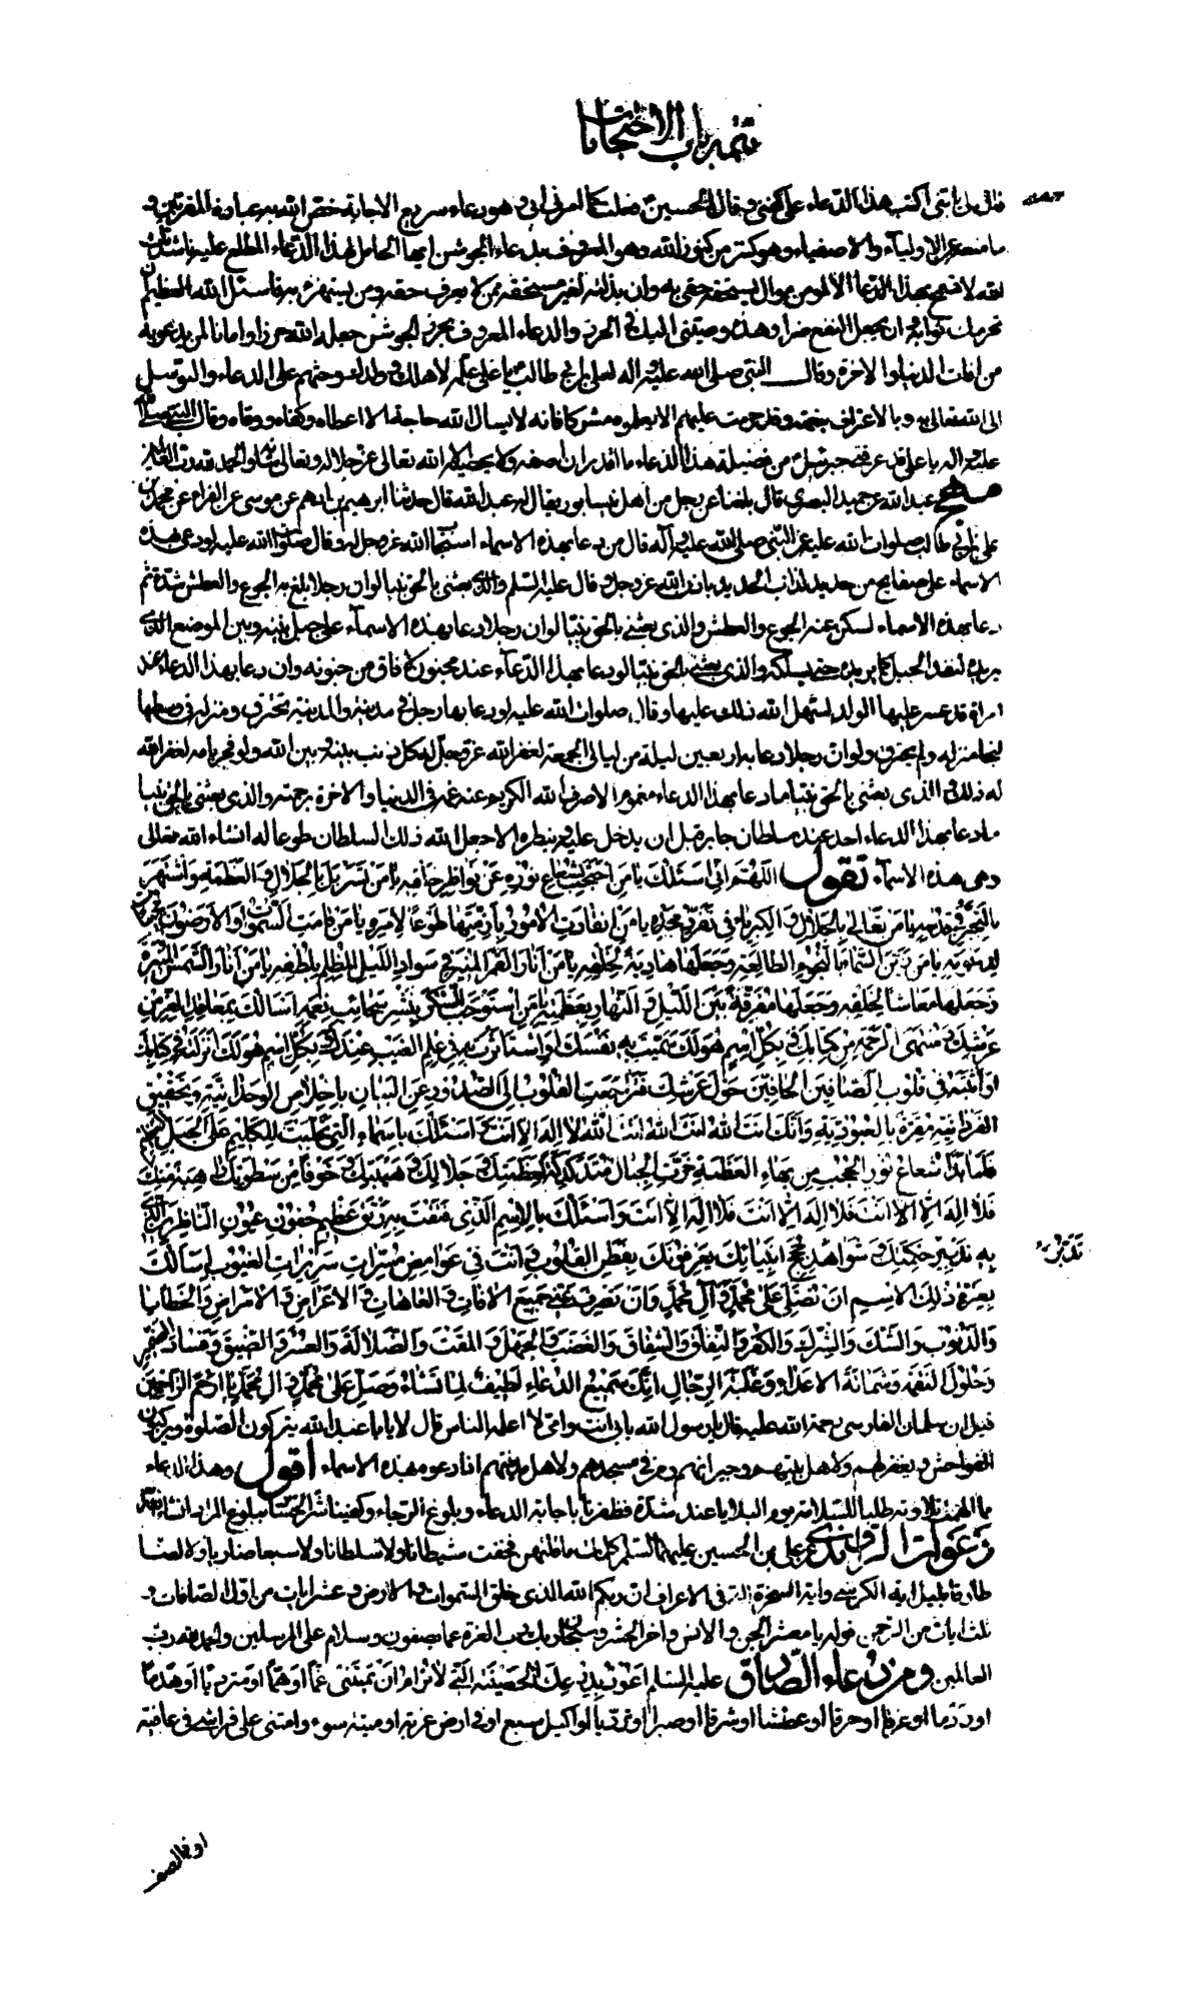 تتمة باب الاحتجابات
قال يا بنى اكتب هذا الدعاء على كفنى وقال الحسين فعلت كما امرنى ابى وهو دعاء سريع الاجابة خص الله به عباده المقربين و
ما منعه عن الاولياء والاصفياء وهو كنز من كنوز الله وهو المعروف بدعاء الجوشن ايها الحامل لهذا الدعاء المطلع عليه ناشدتك
الله لا تسمح بهذا الدعاء الا لمؤمن موال يستحقه حقى به وان بذلته لغير مستحقه ممن لا يعرف حقه ومن يستهزئ به فاسئل الله العظيم ان
يحرمك ثوابه وان يجعل النفع ضرا وهذه وصيتى اليك فى الحرز والدعاء المعروف بحرز الجوشن جعله الله حرزا وامانا لمن يدعو به
من افات الدنيا والاخرة وقال النبى صلى الله عليه واله لعلى بن ابى طالب يا على علمه لاهلك وولدك وحثهم على الدعاء والتوسل
الى الله تعالى به وبالاعتراف بنعمته وقد حرمت عليهم الا يعلموه مشركا فانه لا يسال الله حاجة الا اعطاه وكفاه ووقاه وقال النبى صلى الله
عليه واله يا على قد عرفنى جبرئيل من فضيلة هذا الدعاء ما لا اقدر ان اصفه ولا يحصيه الا الله تعالى عز جلاله وتعالى شانه والحمد لله رب العالمين
مهج عبد الله عن حميد البصرى قال بلغنا عن رجل من اهل نيسابور يقال له عبد الله قال حدثنا ابرهيم بن ادهم عن موسى عن الفراء عن محمد بن
على بن ابى طالب صلوات الله عليه عن النبى صلى الله عليه وآله قال من دعا بهذه الاسماء استجاب الله عز وجل له وقال صلوات الله عليه لو دعى بهذه
الاسماء على صفايح من حديد لذاب الحديد باذن الله عز وجل وقال عليه السلم والذى بعثنى بالحق نبيا لو ان رجلا بلغ به الجوع والعطش شدة ثم
دعا بهذه الاسماء لسكن عنه الجوع والعطش والذى بعثنى بالحق نبيا لو ان رجلا دعا بهذه الاسمآء على جبل بينه وبين الموضع الذى
يريده لنفذ الجبل كما يريده حتى يسلكه والذى بعثنى بالحق نبيا لو دعا بهذا الدعآء عند مجنون لافاق من جنونه وان دعا بهذا الدعاء عند
امراة قد عسر عليها الولد لسهل الله ذلك عليها وقال صلوات الله عليه لو دعا بها رجل فى مدينة والمدينة تحترق ومنزله فى وسطها
لنجا منزله ولم يحترق ولو ان رجلا دعا بها اربعين ليلة من ليالى الجمعة لغفر الله عز وجل له كل ذنب بينه وبين الله ولو فجر بامه لغفر الله
له ذلك والذى بعثنى بالحق نبيا ما دعا بهذا الدعاء مغموم الا صرف الله الكريم عنه غمه فى الدنيا والاخرة برحمته والذى بعثنى بالحق نبيا
ما دعا بهذا الدعاء احد عند سلطان جابر قبل ان يدخل عليه وينظره الا جعل الله ذلك السلطان طوعا له انشاء الله تعالى
وهى هذه الاسمآء تقول اَللّهُمَّ اِنّى اَسئَلُكَ يا مَنِ احتَجَبَ بِشُعاعِ نُورِهِ عَن نَواظِرِ خَلقِهِ يا مَن تَسَربَلَ بِالجَلالِ وَالعَظَمَةِ وَاشتَهَرَ
بِالتَّجَبُّرِ فى قُدسِهِ يا مَن تَعالى بِالجَلالِ وَالكِبرِياءِ فى تَفَرُّدِ مَجدِهِ يا مَنِ انقادَتِ الاُمُورُ بِاَزِمَّتِها طَوعاً لِاَمرِهِ يا مَن قامَتِ السَّمواتُ وَالاَرَضُونَ مُجيباتٍ
لِدَعوَتِهِ يا مَن زَيَّنَ السَّماءَ بِالنُّجُومِ الطّالِعَةِ وَجَعَلَها هادِيَةً لِخَلقِهِ يا مَن اَنارَ القَمَرَ المُنيرَ فى سَوادِ اللَّيلِ المُظلِمِ بِلُطفِهِ يا مَن اَنارَ الشَّمسَ المُنيرَةَ
وَجَعَلَها مَعاشاً لِخَلقِهِ وَجَعَلَها مُفَرِّقَةً بَينَ اللَّيلِ وَالنَّهارِ بِعَظَمَتِهِ يا مَنِ استَوجَبَ الشُّكرَ بِنَشرِ سَحائِبِ نِعَمِهِ اَسالُكَ بِمَعاقِدِ العِزِّ مِن
عَرشِكَ وَمُنتَهَى الرَّحمَةِ مِن كِتابِكَ وَبِكُلِّ اسمٍ هُوَ لَكَ سَمَّيتَ بِهِ نَفسَكَ اَوِ استَاثَرتَ بِهِ فى عِلمِ الغَيبِ عِندَكَ وَبِكُلِّ اسمٍ هُوَ لَكَ اَنزَلتَهُ فى كِتابِكَ
اَو اَثبَتَّهُ فى قُلُوبِ الصّافّينَ الحافّينَ حَولَ عَرشِكَ فَتَراجَعَتِ القُلُوبُ اِلَى الصُّدُورِ عَنِ البَيانِ بِاِخلاصِ الوَحدانِيَّةِ وَتَحقيقِ
الفَردانِيَّةِ مُقِرَّةً بِالعُبُودِيَّةِ وَاَنَّكَ اَنتَ اللهُ اَنتَ اللهُ اَنتَ اللهُ لا اِلهَ اِلّا اَنتَ وَاَسئَلُكَ بِاَسماءِ الَّتى تَجَلَّيتَ لِلكَليمِ عَلَى الجَبَلِ العَظيمِ
فَلَمّا بَدا شُعاعُ نُورِ الحُجُبِ مِن بَهاءِ العَظَمَةِ خَرَّتِ الجِبالُ مُتَدَكدِكَةً لِعَظَمَتِكَ وَجَلالِكَ وَهَيبَتِكَ وَخَوفاً مِن سَطوَتِكَ راهِبَةً مِنكَ
فَلا اِلهَ اِلّا اَنتَ فَلا اِلهَ اِلّا اَنتَ فَلا اِلهَ اِلّا اَنتَ وَاَسئَلُكَ بِالاِسمِ الَّذى فَتَقتَ بِهِ رَتقَ عَظيمِ جُفُونِ عُيُونِ النّاظِرينَ الَّذى
تَدَبُّر
بِهِ تَدبيرُ حِكمَتِكَ وَشَواهِدُ حُجَجِ اَنبِيائِكَ يَعرِفُونَكَ بِفِطَنِ القُلُوبِ وَاَنتَ فى غَوامِضِ مُسَرّاتِ سَريراتِ الغُيُوبِ اَسالُكَ
بِعِزَّةِ ذلِكَ الاِسمِ اَن تُصَلِّىَ عَلى مُحَمَّدٍ وَآلِ مُحَمَّدٍ وَاَن تَصرِفَ عَنّى جَميعَ الافاتِ وَالعاهاتِ وَالاَعراضِ وَالاَمراضِ وَالخَطايا
وَالذُّنُوبِ وَالشَّكِّ وَالشِّركِ وَالكُفرِ وَالنِّفاقِ وَالشِّقاقِ وَالغَضَبِ وَالجَهلِ وَالمَقتِ وَالضَّلالَةِ وَالعُسرِ وَالضّيقِ وَفَسادِ الضَّميرِ
وَحُلُولِ النَّقِمَةِ وَشَماتَةِ الاَعداءِ وَغَلَبَةِ الرِّجالِ اِنَّكَ سَميعُ الدُّعاءِ لَطيفٌ لِما تَشاءُ وَصَلِّ عَلى مُحَمَّدٍ وَالِ مُحَمَّدٍ يا اَرحَمَ الرّاحِمينَ
قيل ان سلمان الفارسى رحمة الله عليه قال يا رسول الله بابى انت وامى الا اعلمه الناس قال لا يا با عبد الله يتركون الصلوة ويركبون
الفواحش ويغفر لهم ولاهل بيتهم وجيرانهم ومن فى مسجدهم ولاهل مدينتهم اذا دعوه بهذه الاسماء اقول وهذا الدعاء
مما الهمنا تلاوته طلبا للسلامة يوم البلايا عند شدة فظفرنا باجابة الدعاء وبلوغ الرجاء وكفينا شر الحساد ببلوغ المراد انشاء الله
دعوات الراوندى عن على بن الحسين عليهما السلم كلمات ما قلتهن فخفت شيطانا ولا سلطانا ولا سبعا ضاريا ولا لصا
طارقا بليل اية الكرسى واية السخرة التى فى الاعراف ان ربكم الله الذى خلق السموات والارض وعشر ايات من اول الصافات و
ثلث ايات من الرحمن قوله يا معشر الجن والانس واخر الحشر وسبحان ربك رب العزة عما يصفون وسلام على المرسلين والحمد لله رب
العالمين ومن دعاء الصادق عليه السلم اعوذ بدرعك الحصينة التى لا ترام ان تميتنى غما او هما او مترديا او هدما
او ردما او غرقا او حرقا او عطشا او شرقا او صبرا او ترديا او اكيل سبع او فى ارض غربة او ميتة سوء وامتنى على فراشى فى عافية
او فى الصف